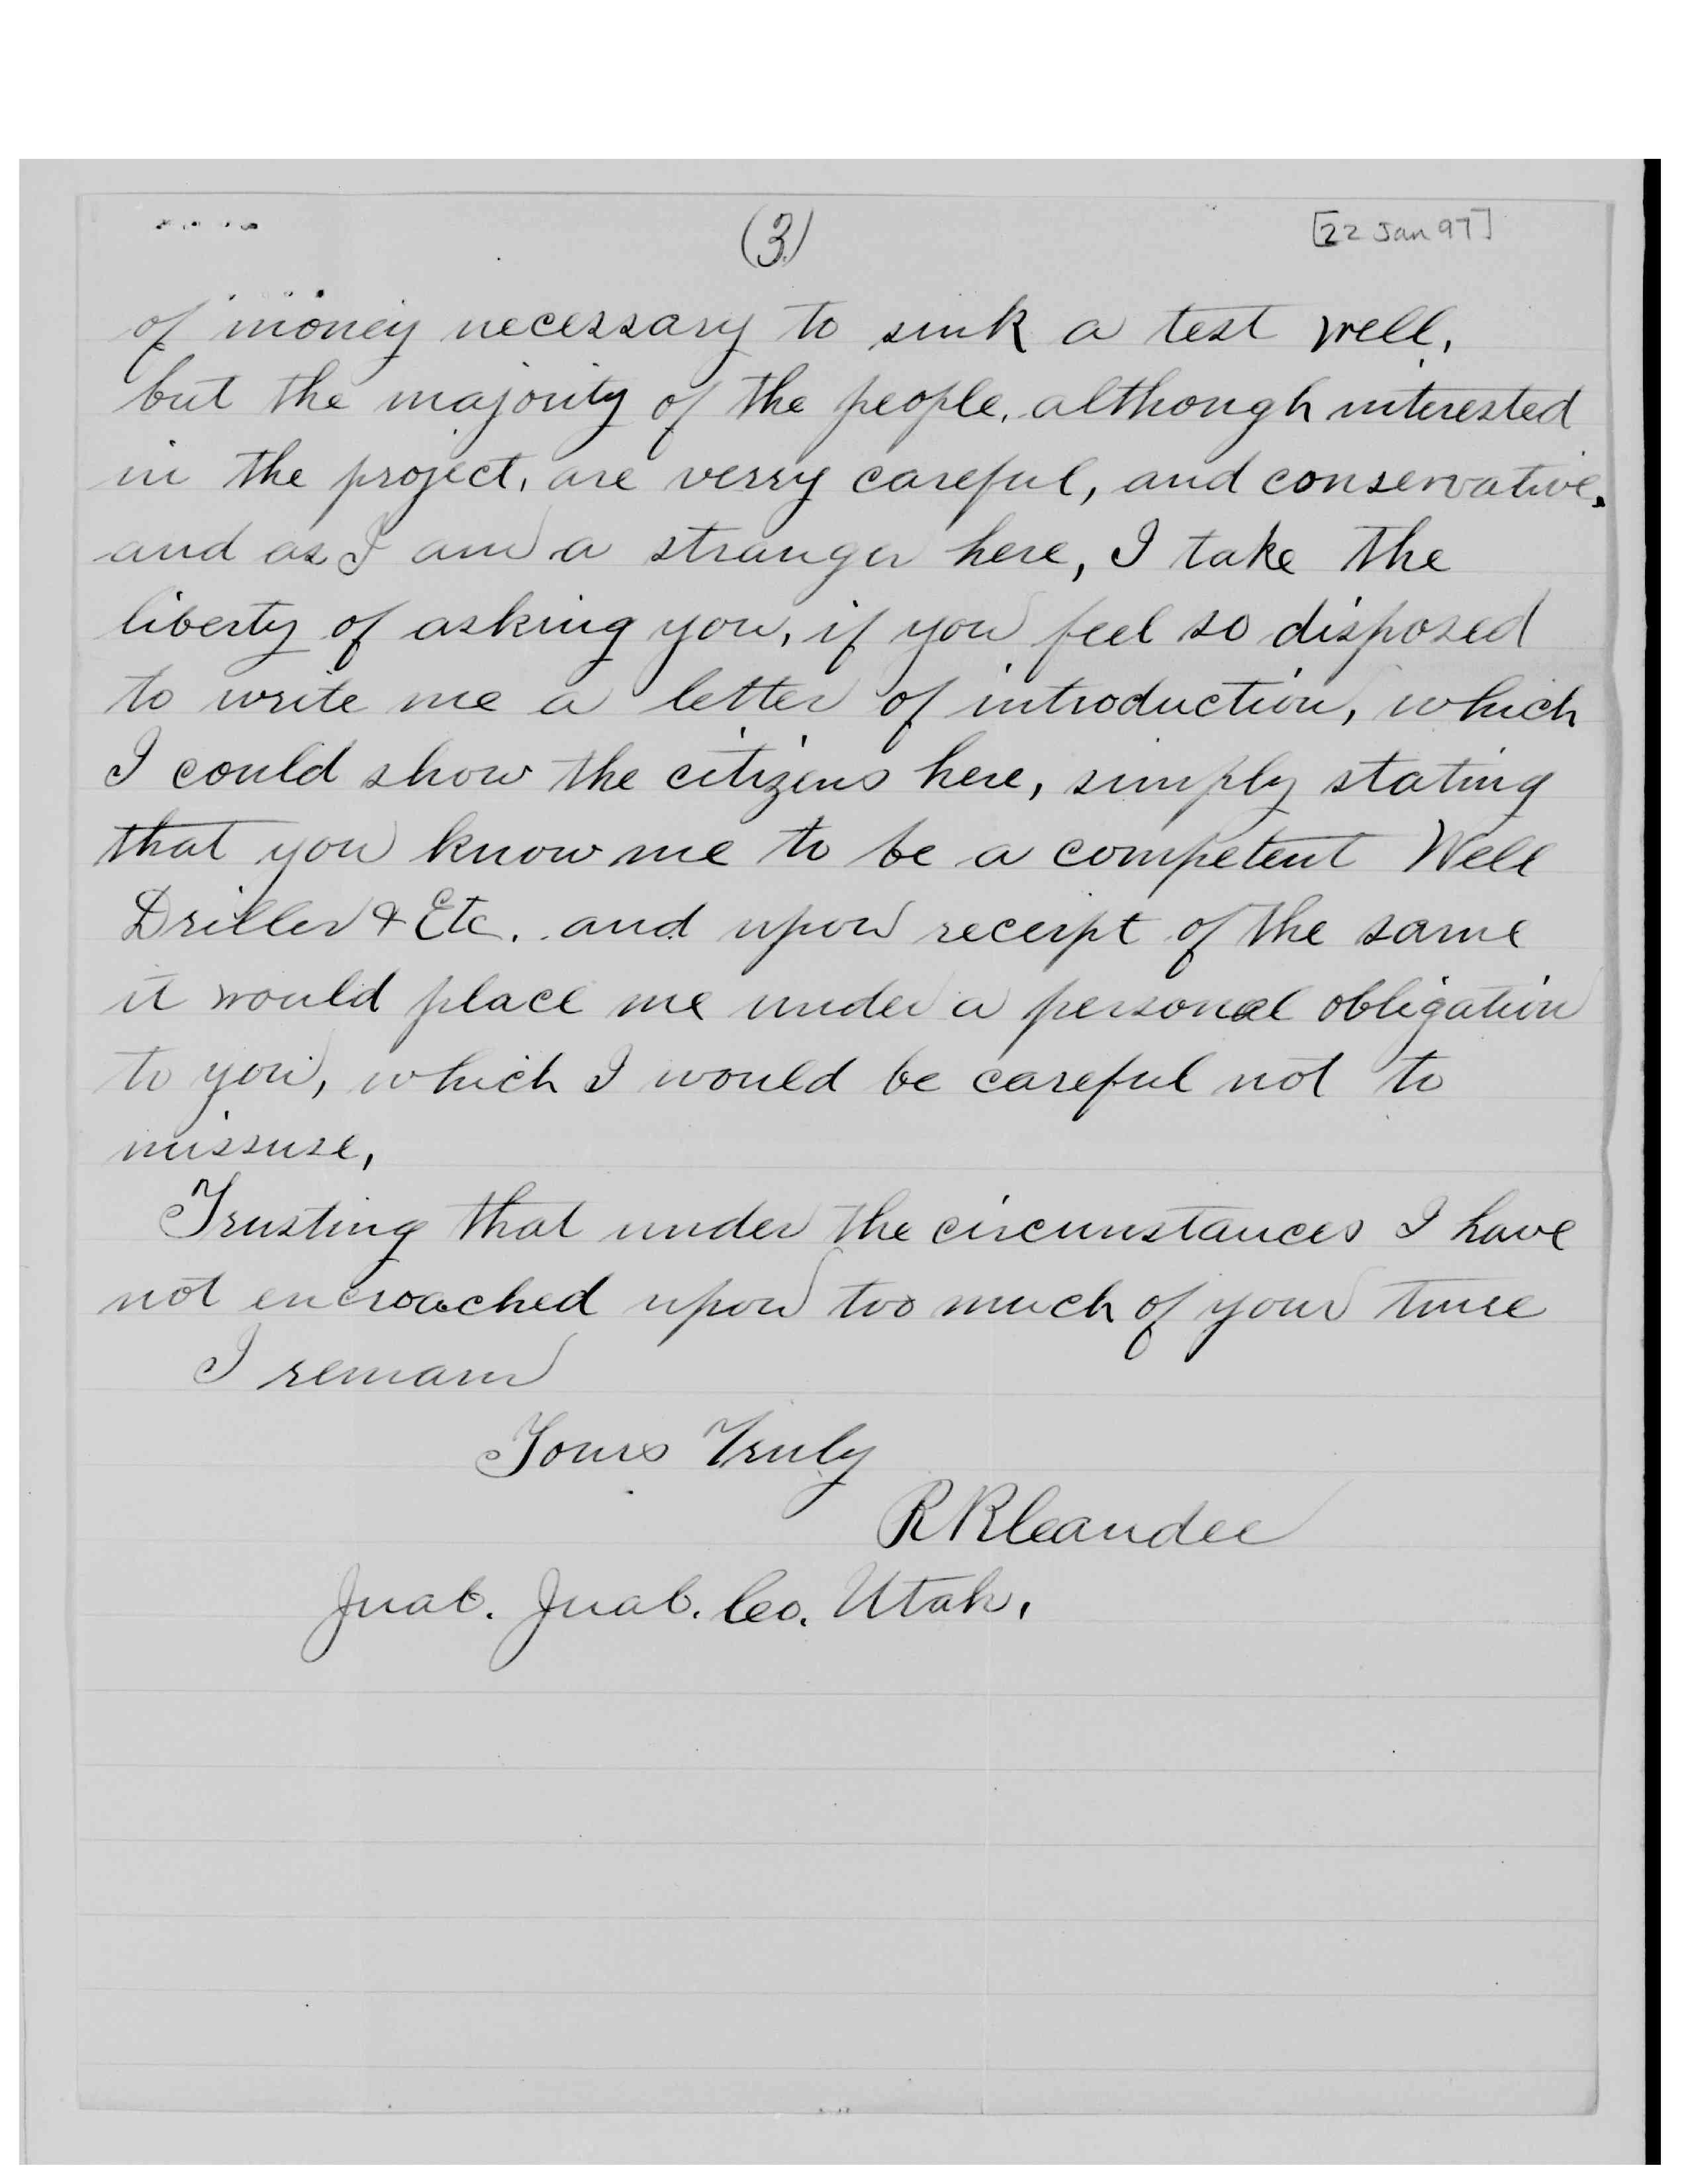 (3)
[22 Jan 97]
of money necessary to sink a test well,
but the majority of the people, although interested
in the project, are verry careful, and conservative,
and as I am a stranger here, I take the
liberty of asking you, if you feel so disposed
to write me a letter of introduction, which
I could show the citizens here, simply stating
that you know me to be a competent Well
Driller & Etc. and upon receipt of the same
it would place me under a personal obligation
to you, which I would be careful not to
missuse,
Trusting that under the circumstances I have
not encroached upon too much of your time
I remain
Yours Truly
R R Leander
Juab. Juab. Co. Utah.